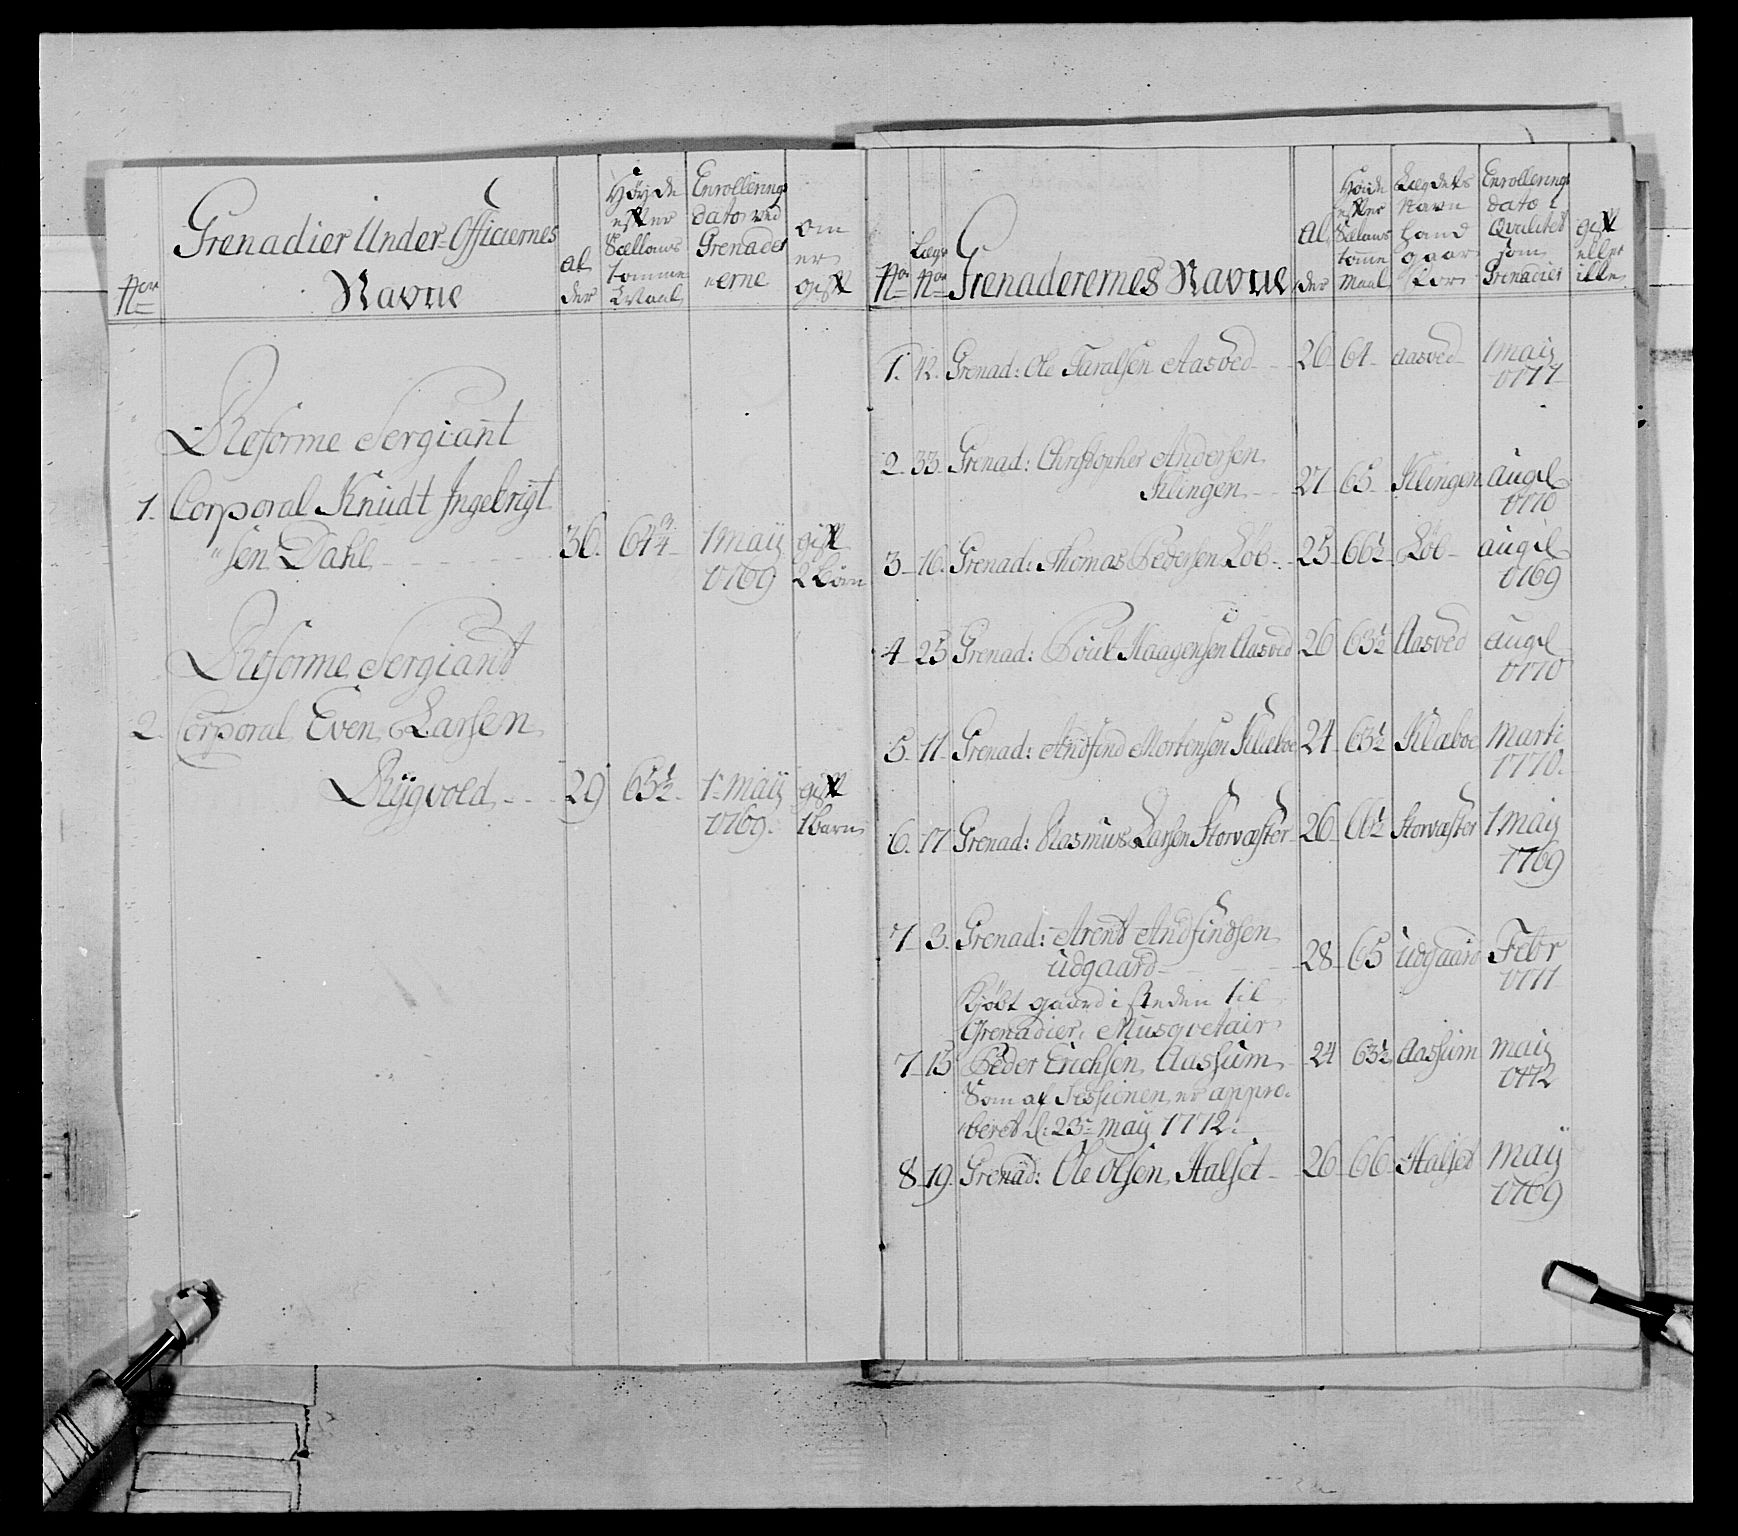 Nro
Grenadier Under-Officiernes
Navne
al
der
Høyde
efter
Sællans
tomme
Maal
Enrollerings
dato ved
Grenader
"erne
om
er
gift
Reforme Sergiant
1. Corporal Knudt Ingebrigt
"sen Dahl 36. 64 3/4 1 maij 1769 gift 2 børn
Reforme Sergiant
2. Corporal Even Larsen
Rygvold 29 65 1/2 1te maij 1769. gift 1 barn
Nro
Lægs
Nro
Grenaderernes Navne
al
der
Høide
efter
Sællans
tomme
Maal
Legdets
Navn
hand
gaar
for
Enrollerings
dato i
Qvalitet
som
Grenadier
gift
eller
ikke
1. 12. Grenad: Ole Taralsen Aasved 26 64 aasved 1 maij
1771
2. 33. Grenad: Christopher Andersen
Klingen 27 65 Klingen augl
1770
3 16. Grenad: Thomas Pedersen Løb 25 66 1/2 Løb augl
1769
4 25 Grenad: Poul Haagensen Aasved 26 63 1/2 Aasved augl
1770
5 11 Grenad: Andfind Mortensen Klæboe 24 63 1/2 Klæboe Marti
1770.
6. 17 Grenad: Rasmus Larsen Storvæster 26 66 1/2 Storvæster 1 maij
1769
7 3. Grenad: Arent Andfindsen
Udgaard 28 65 Udgaard Febr
1771
Kjøbt gaard i steden til
Grenadier, Musqvetair
7 15 Peder Erichsen Aashum 24 63 1/2 Aashum maij
1772
Som af Sessionen er appro-
beret d: 23de maij 1772.
8 19. Grenad: Ole Olsen Halset 26 66 Halset maij
1769